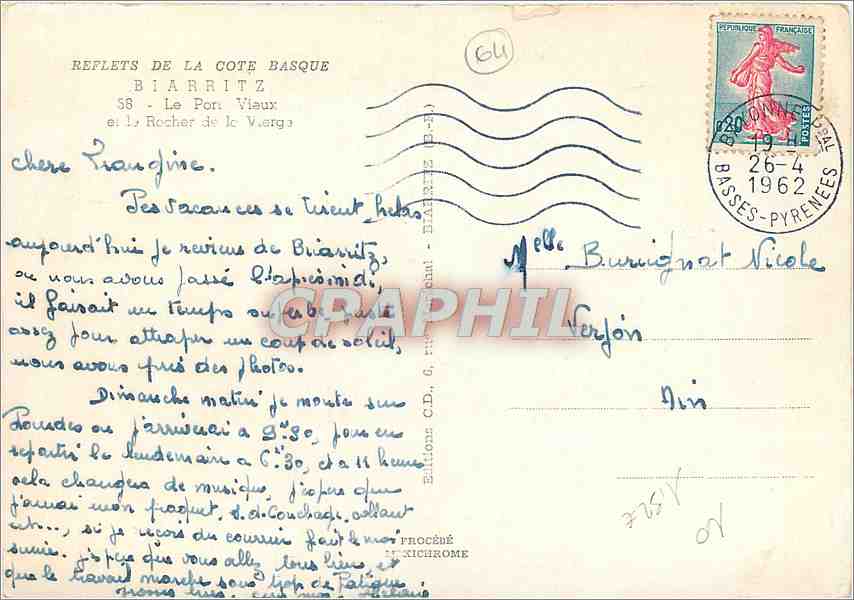 REFLETS DE LA COTE BASQUE
BIARRITZ
58 - Le Port Vieux
et le Rocher de la Vierge
64
REPUBLIQUE FRANÇAISE
0,20
POSTES
BAYONNE
19 H
26-4
1962
BASSES-PYRENEES
chere
Ses vacances se tirent helas
aujourd'hui je reviens de Biarritz,
ou nous avons passé l'apresmidi,
il faisait un temps superbe juste
assez pour attraper un coup de soleil,
nous avons pris des photos.
Dimanche matin je monte sur
Lourdes ou j'arriverai a 9h30, pour en
repartir le lendemain a 6h30, et a 11 heure
cela changera de musique, j'espere que
j'aurai mon paquet, s. d. Couchage, collant
ect..., si je recois du courrier fait le moi
suivre. j'espere que vous allez tous bien, et
que le travail marche sans trop de fatigue
Editions C.D., 6, rue Maréchal - BIARRITZ (B.-P.)
PROCÉDÉ
MEXICHROME
Melle Burignat Nicole
Verjon
Ain
CPAPHIL